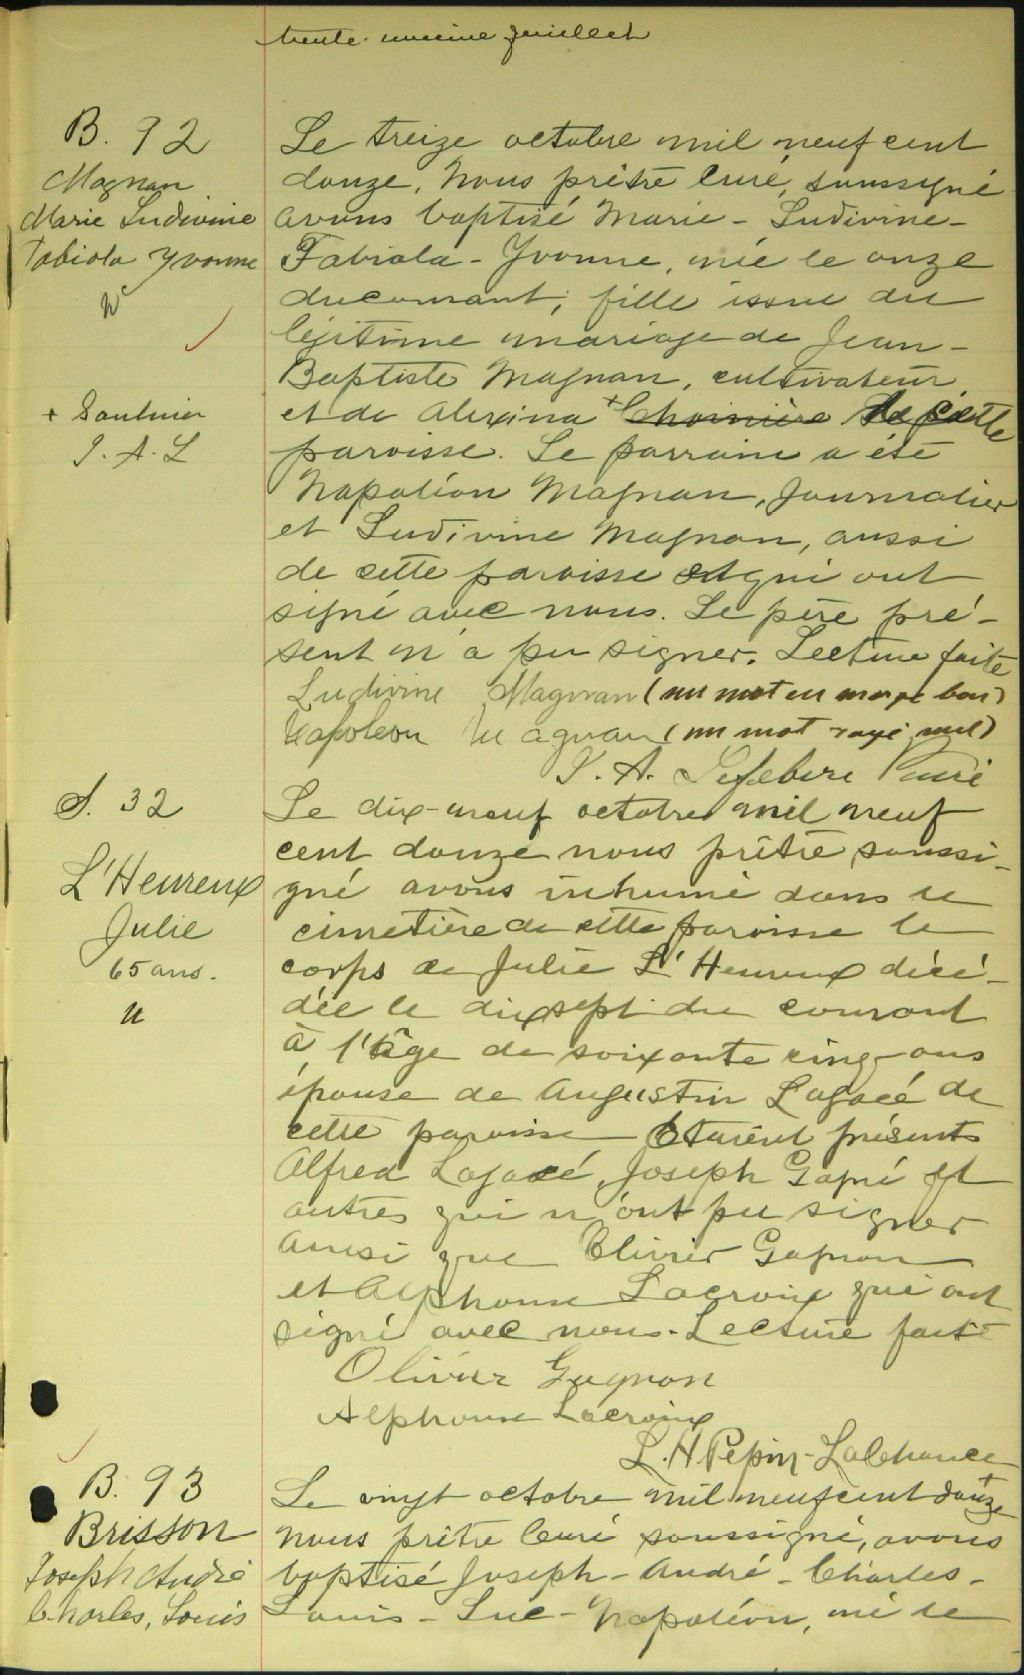 trente-unième feuillet
B. 92
Magnan
Marie Ludivine
Fabiola Yvonne
+ Saulnier
J. A. L
Le treize octobre mil neuf cent
douze, Nous prêtre Curé, soussigné
avons baptisé Marie-Ludivine-
Fabiola-Yvonne, née le onze
du courant, fille issue du
légitime mariage de Jean-
Baptiste Magnan, cultivateur
et de Alexina + Choinière de cette
paroisse. Le parrain a été
Napoléon Magnan, journalier
et Ludivine Magnan, aussi
de cette paroisse et qui ont
signé avec nous. Le père pré-
sent n'a pu signer. Lecture faite
Ludivine Magnan (un mot en marge bon)
Napoleon Magnan (un mot rayé nul)
J. A. Lefebvre Ptre Curé
S. 32
L'Heureux
Julie
65 ans.
Le dix-neuf octobre mil neuf
cent douze nous prêtre soussi-
gné avons inhumé dans le
cimetière de cette paroisse le
corps de Julie L'Heureux décé-
dée le dix sept du courant
à l'âge de soixante cinq ans
épouse de Augustin Lagacé de
cette paroisse Étaient présents
Alfred Lagacé, Joseph Gagné et
autres qui n'ont pu signer
ainsi que Olivier Gagnon
et Alphonse Lacroix qui ont
signé avec nous. Lecture faite
Olivier Gagnon
Alphonse Lacroix
L. H. Pepin-Lachance
B. 93
Brisson
Joseph André
Charles, Louis
Le vingt octobre mil neuf cent douze
Nous prêtre Curé soussigné, avons
baptisé Joseph-André-Charles-
Louis-Luc-Napoléon, né le